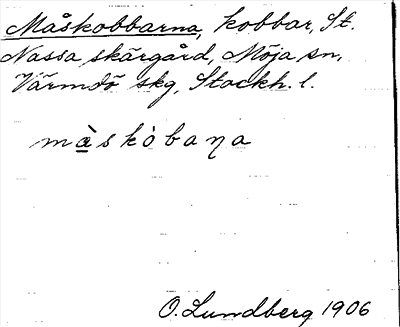 Måskobbarna, kobbar, St.
Nassa skärgård, Möja sn,
Värmdö skg, Stockh. l.
mà̲skòbaƞa
O. Lundberg 1906